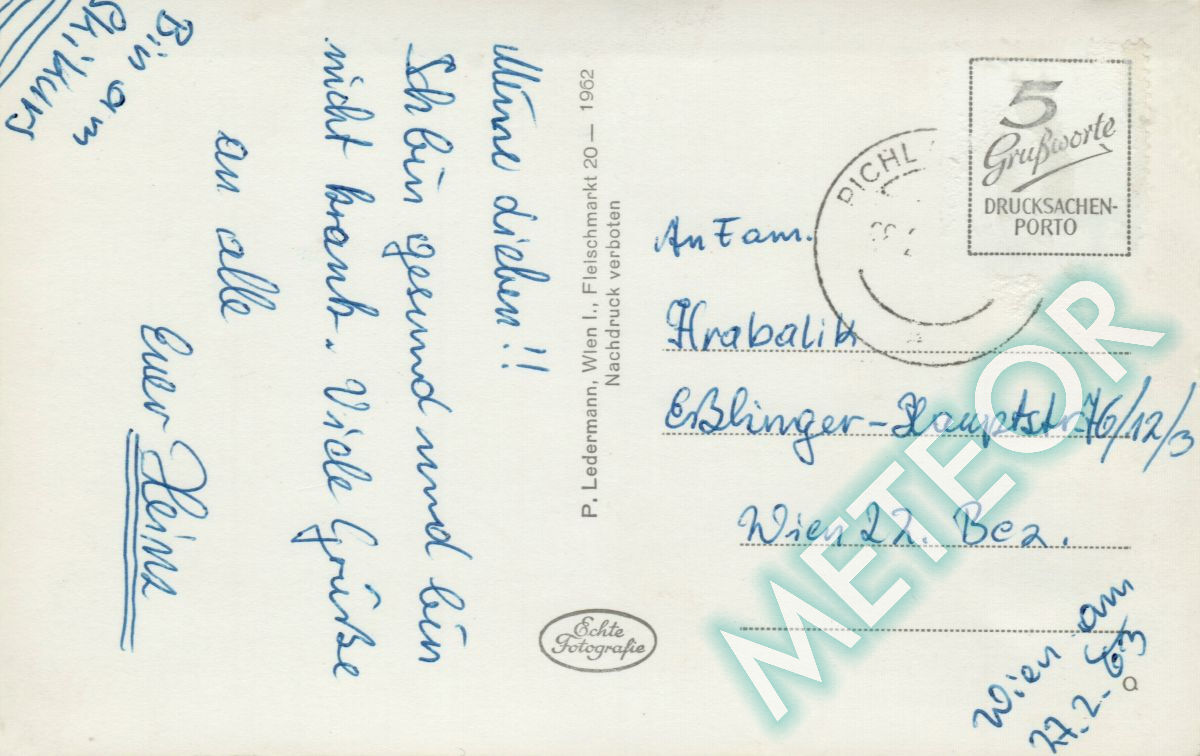 Bin am
Skikurs
Meine Lieben!!
Ich bin gesund und bin
nicht krank. Viele Grüße
an alle
Euer Heinz
P. Ledermann, Wien I., Fleischmarkt 20 — 1962
Nachdruck verboten
Echte
Fotografie
5
Grußworte
DRUCKSACHEN-
PORTO
PICHL
An Fam.
Hrabalik
Eßlinger-Hauptstr. 76/12/3
Wien 22. Bez.
Wien am
27.2.63
Q
METEOR